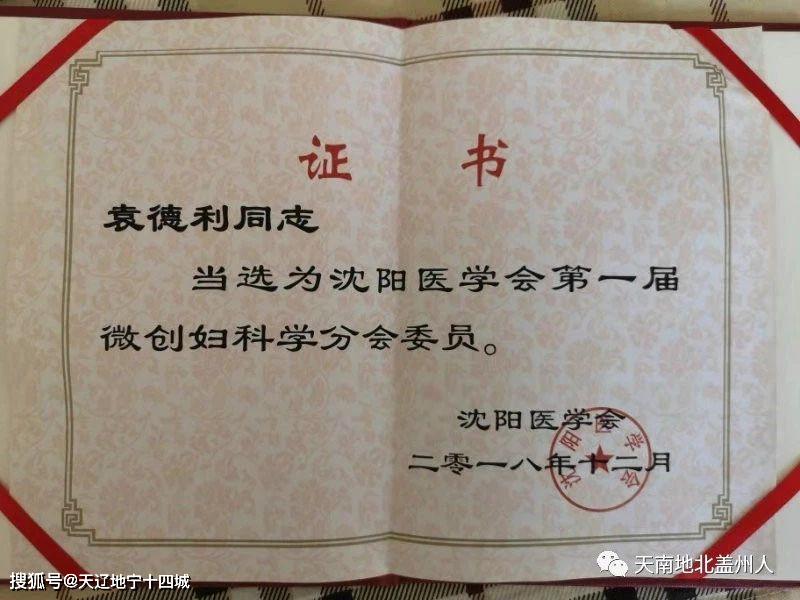 证 书
袁德利同志
当选为沈阳医学会第一届
微创妇科学分会委员。
沈阳医学会
二零一八年十二月
沈阳医学会
搜狐号@天辽地宁十四城
天南地北盖州人